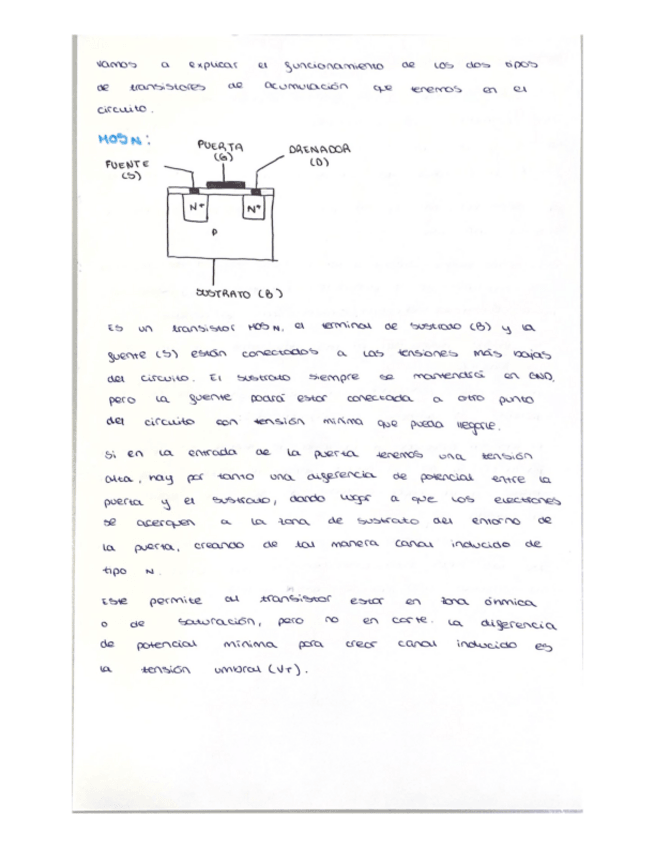 vamos a explicar el funcionamiento de los dos tipos
de transistores de acumulación que tenemos en el
circuito.
MOS N:
PUERTA
(G)
DRENADOR
(D)
FUENTE
(S)
N+
N+
P
SUSTRATO (B)
Es un transistor MOS N, el terminal de sustrato (B) y la
fuente (S) están conectados a las tensiones más bajas
del circuito. El sustrato siempre se mantendrá en GND,
pero la fuente podrá estar conectada a otro punto
del circuito con tensión mínima que pueda llegarle.
Si en la entrada de la puerta tenemos una tensión
alta, hay por tanto una diferencia de potencial entre la
puerta y el sustrato, dando lugar a que los electrones
se acerquen a la zona de sustrato del entorno de
la puerta, creando de tal manera canal inducido de
tipo N.
Este permite al transistor estar en zona óhmica
o de saturación, pero no en corte. La diferencia
de potencial mínima para crear canal inducido es
la tensión umbral (VT).